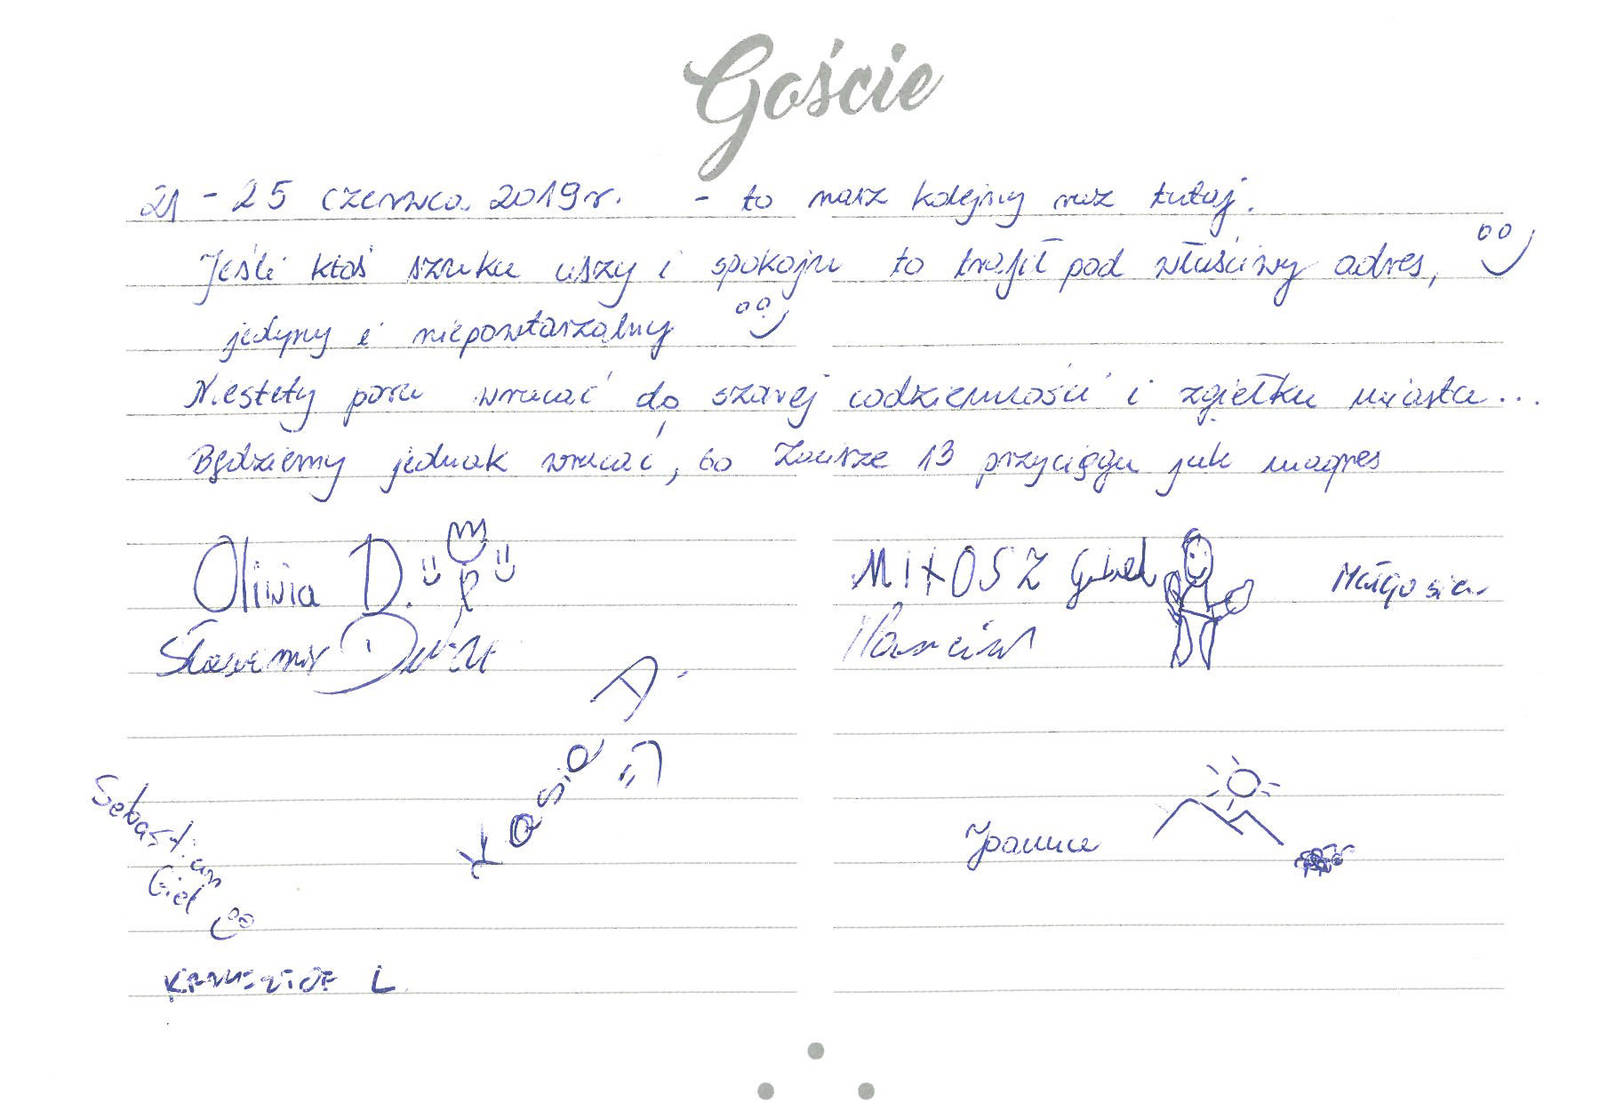 Goście
21 - 25 czerwca 2019r. - to nasz kolejny raz tutaj.
Jeśli ktoś szuka ciszy i spokoju to trafił pod właściwy adres,
jedyny i niepowtarzalny
Niestety pora wracać do szarej codzienności i zgiełku miasta...
Będziemy jednak wracać, bo Zacisze 13 przyciąga jak magnes
Oliwia D.
MIŁOSZ
Małgosia
Sławomir
Marcin
Kasia D.
Sebastian
Joanna
L